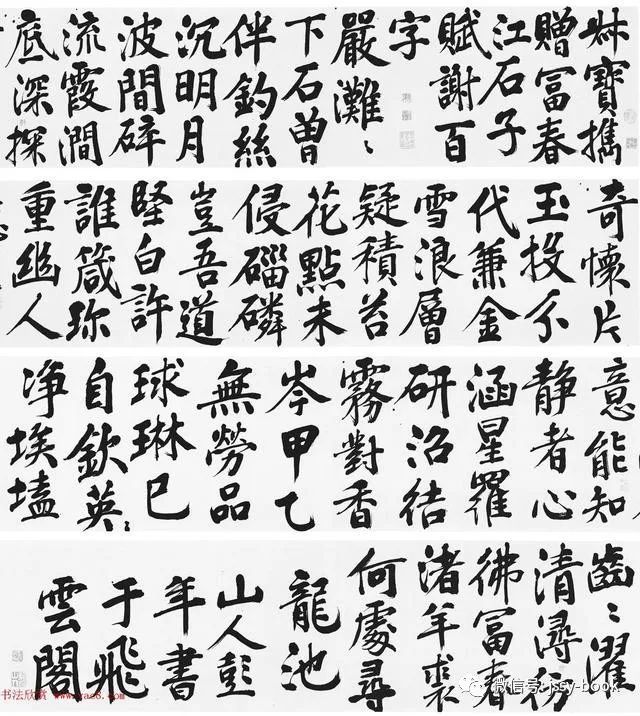 寶攜
贈冨春
江石子
賦謝百
字
嚴灘〻
下石曾
伴釣絲
沉明月
波間碎
流霞澗
底深探
奇懷片
玉投不
代兼金
雪浪層
疑積苔
花點未
侵磷
豈吾道
堅白許
誰箴珎
重幽人
意能知
静者心
涵星羅
研沼結
霧對香
岑甲乙
無勞品
球琳已
自欽英〻
净埃壒
齒〻濯
清潯彷
彿冨春
渚羊裘
何處尋
龍池
山人彭
年書
于飛
雲閣
书法欣赏 www.yac8.com
微信号: jssy-book